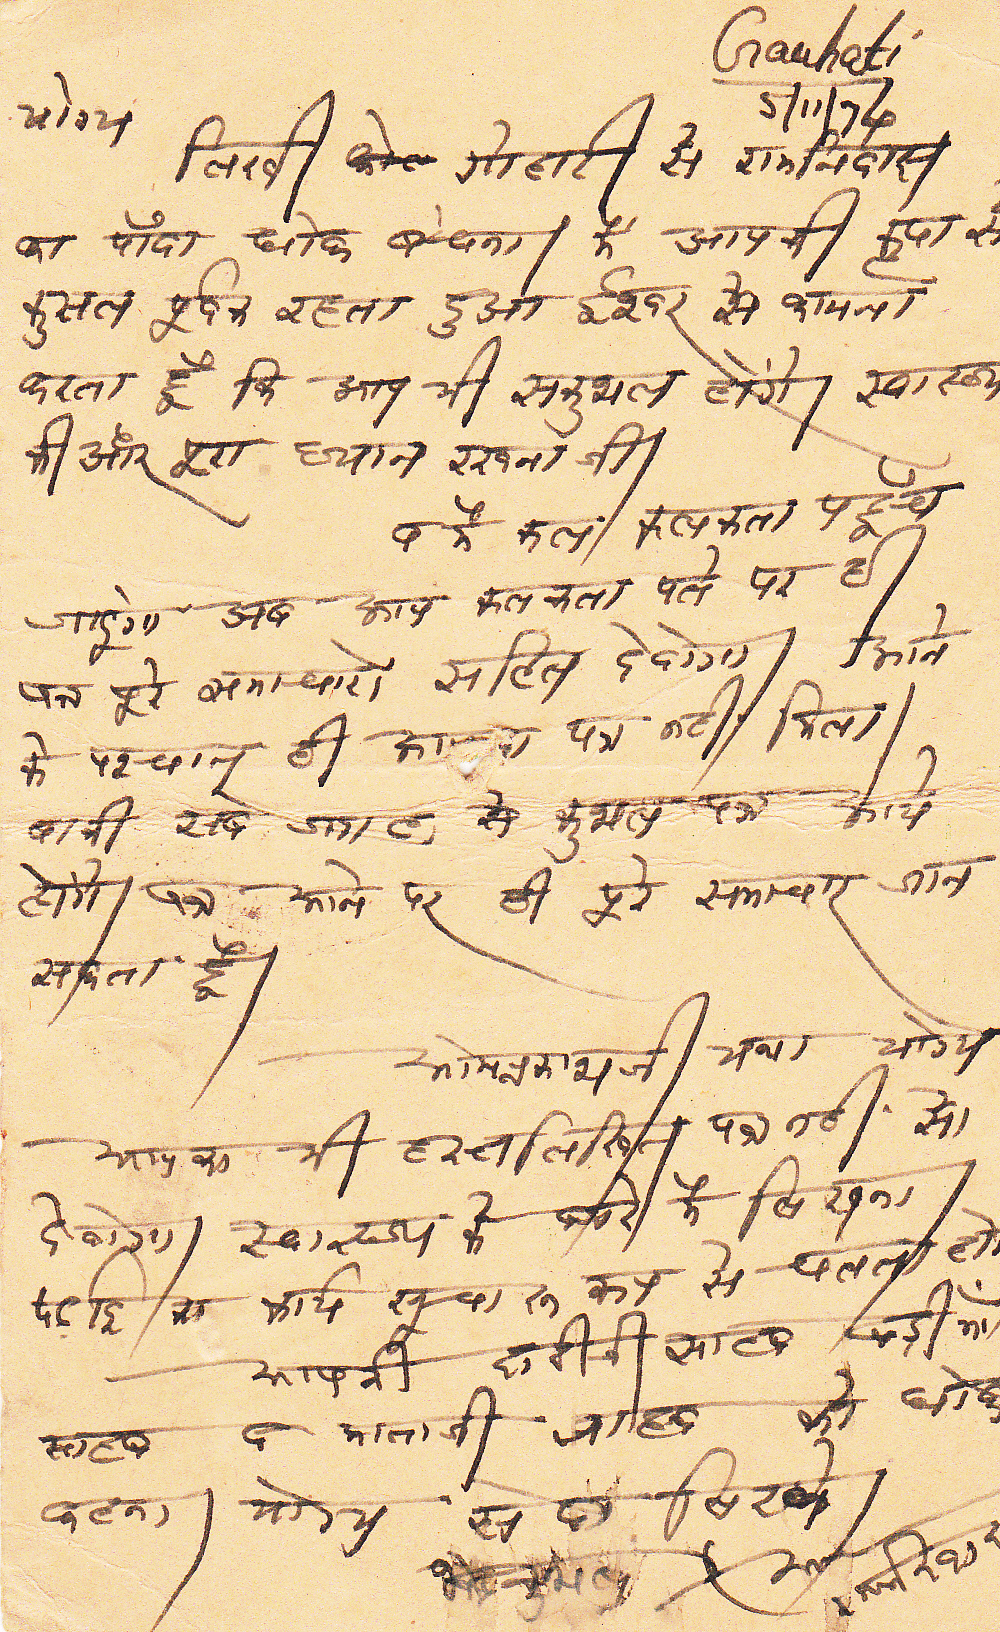 Gauhati
5/11/74
योग्य
लिखी गोहाटी से रामनिवास
का पाँवा धोक बंचना। मैं आपकी कृपा से
कुसल पूर्वक रहता हुआ ईश्वर से कामना
करता हूँ कि आप भी सकुशल होंगे। स्वास्थ्य
की और पूरा ध्यान रखना जी।
व मैं कल कलकता पहूँच
जाऊंगा अब आप कलकता पते पर ही
पत्र पूरे समाचारों सहित देवोगा। आने
के पश्चात् ही पत्र नहीं मिला।
बाकी सब जगह से कुशल पत्र आये
होंगे। पत्र आने पर ही पूरे समाचार जान
सकता हूँ।
ओमप्रकाशजी यथा योग्य
आपका भी हस्तलिखित पत्र नहीं सो
देवोगा। स्वास्थ्य के बारे में लिखना।
पढ़ाई का कार्य सूचारू रूप से चलता हो
आपकी दादीजी साहब बड़ीमाँ
साहब व माताजी साहब को धोक
कहना। योग्य सेवा लिखे।
शेष कुशल